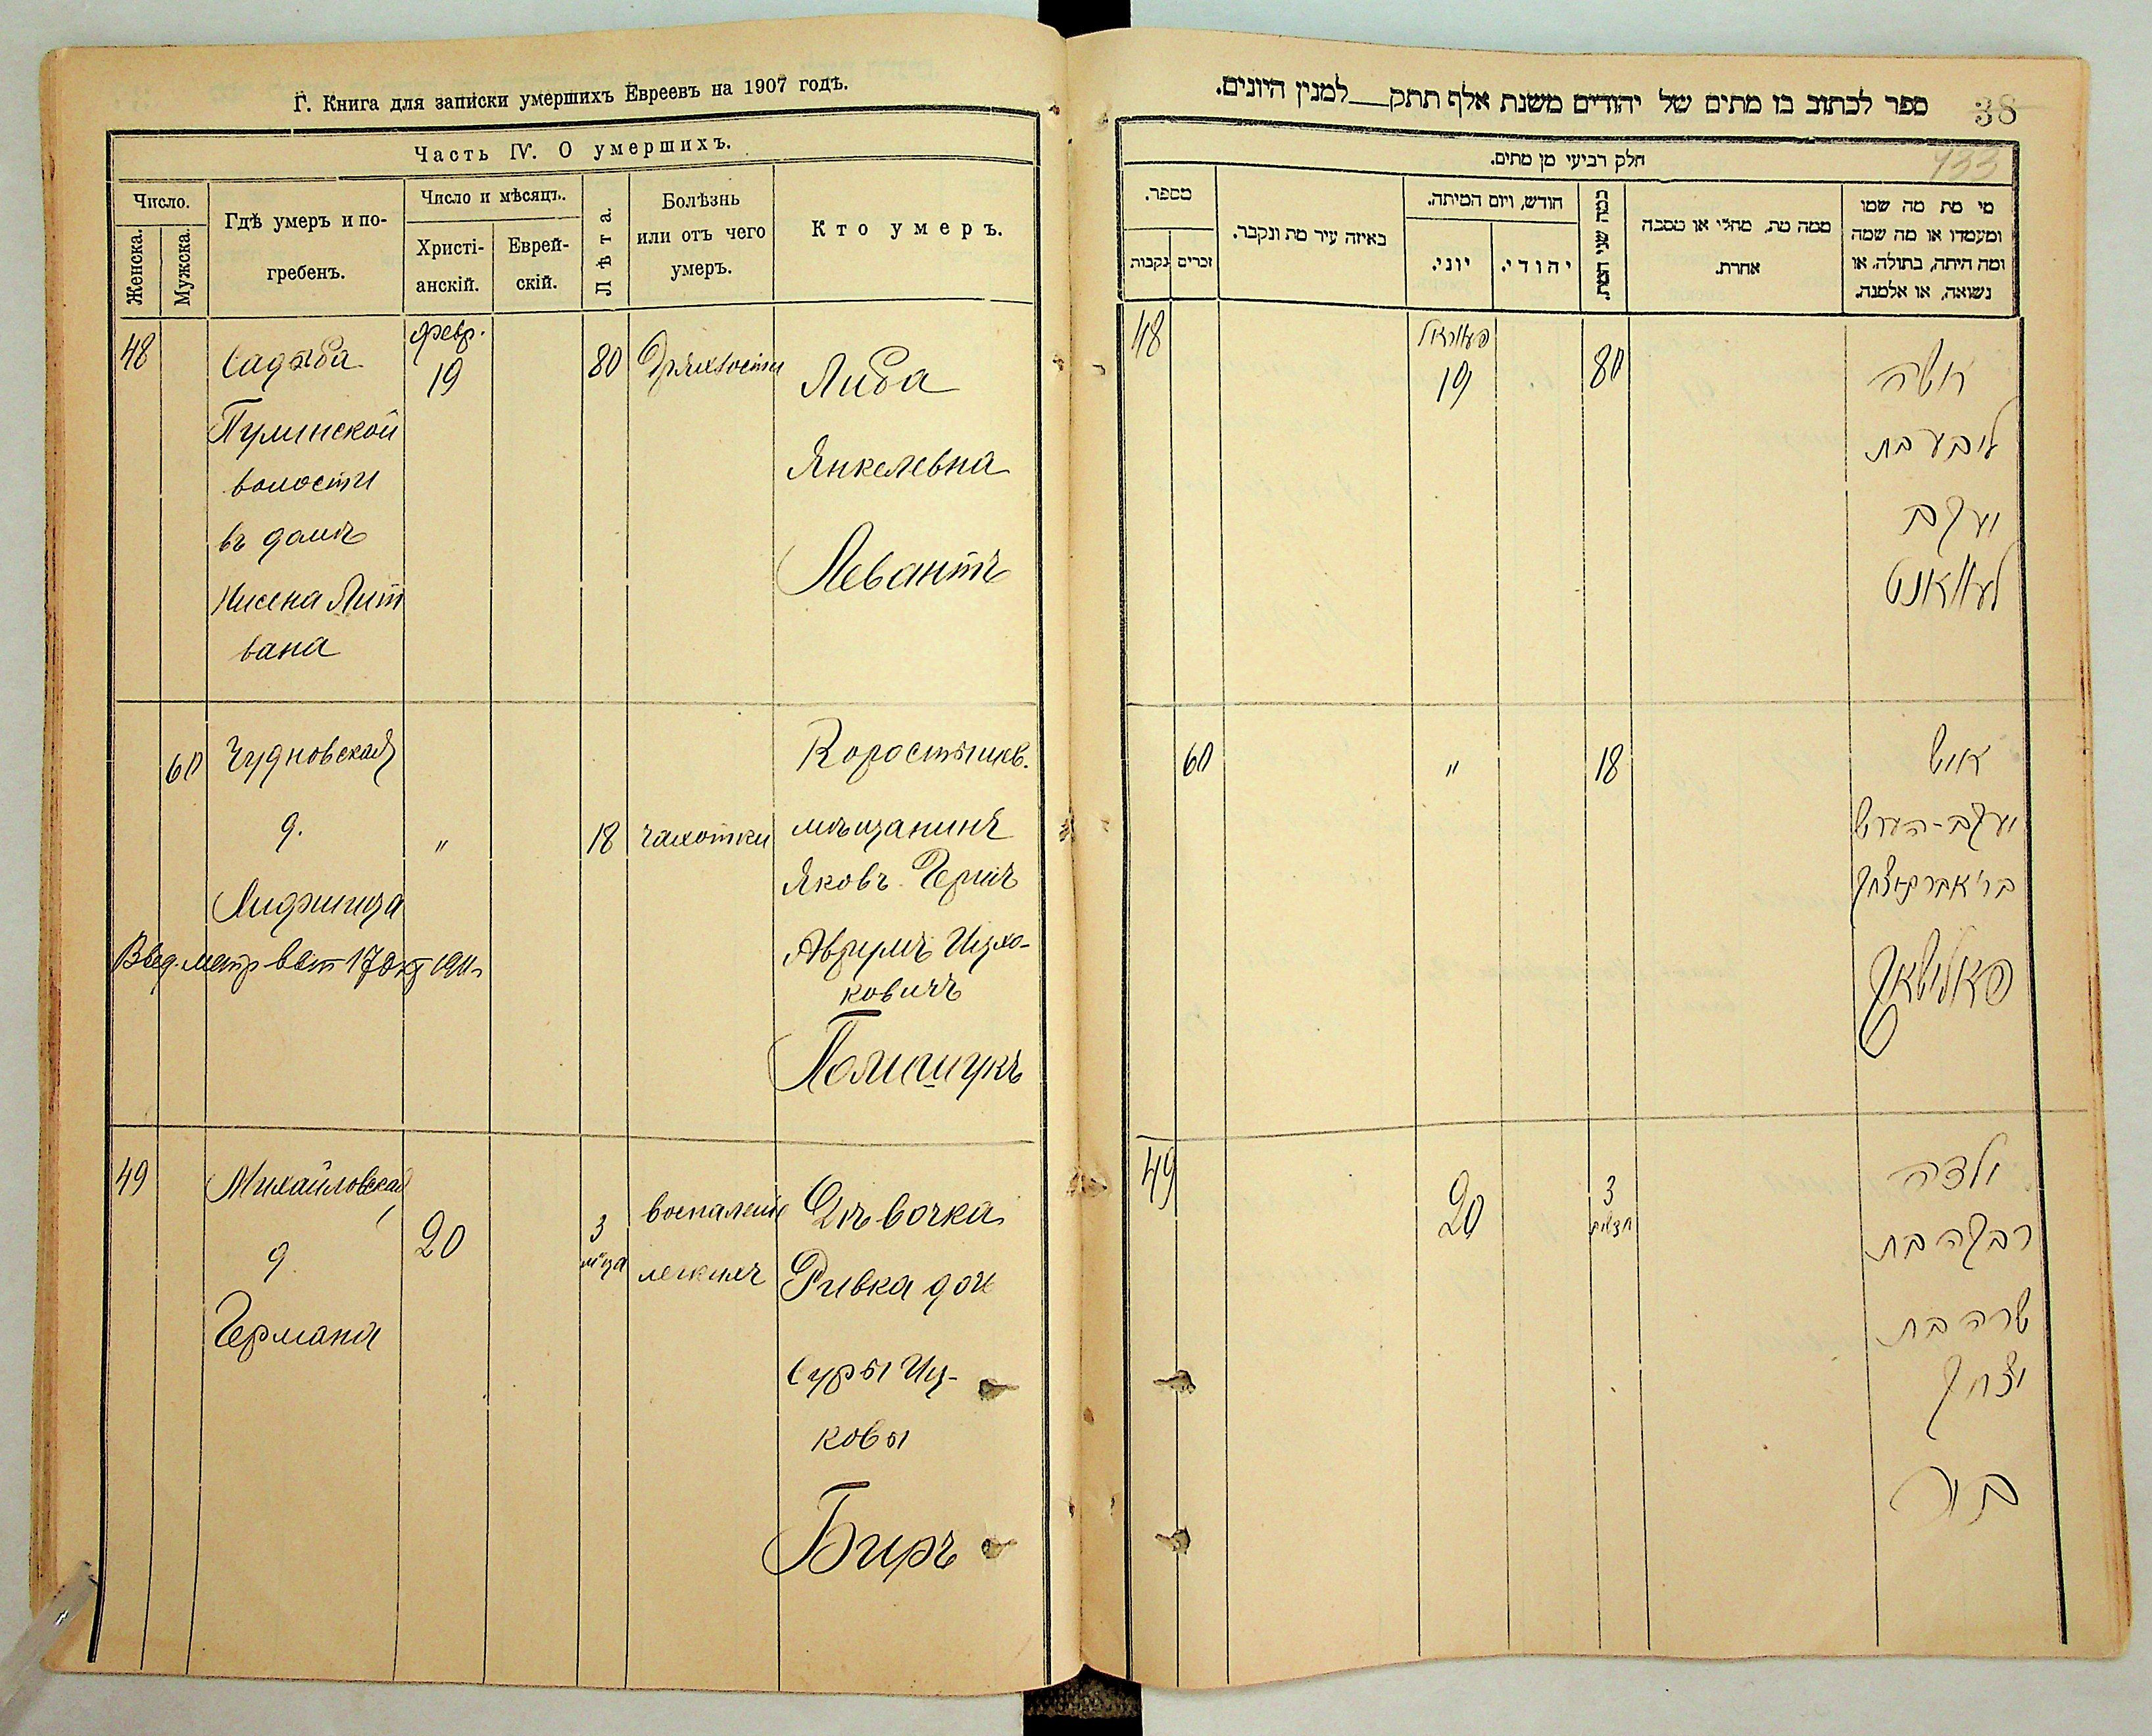 Г. Книга для записки умершихъ Евреевъ на 1907 годъ.
Часть IV. О умершихъ.
Число.
Женска.
Мужска.
Гдѣ умеръ и по-
гребенъ.
Число и мѣсяцъ.
Христі-
анскій.
Еврей-
скій.
Лѣта.
Болѣзнь
или отъ чего
умеръ.
Кто умеръ.
48
Садыба
Пулинской
волости
въ домѣ
Нисена Лит
вана
февр.
19
80
Дряхлости
Либа
Янкелевна
Левантъ
60
Чудновская
д.
Лифшица
"
18
чахотки
Коростышев.
мѣщанинъ
Яковъ Гершъ
Аврумъ Ицко-
ковичъ
Полищукъ
49
Михайловская
д.
Германа
20
3
м-ца
воспаленіе
легкихъ
Дѣвочка
Ривка дочь
Суры Иц-
ковы
Биръ
ספר לכתוב בו מתים של יהודים משנת אלף תתק למנין היונים.
38
חלק רביעי מן מתים.
מספר.
נקבות
זכרים
באיזה עיר מת ונקבר.
חודש, ויום המיתה.
יוני.
יהודי.
כמה שני המת.
ממה מת, מחלי או מסבה
אחרת.
מי מת מה שמו
ומעמדו או מה שמה
ומה היתה, בתולה, או
נשואה, או אלמנה.
48
פעווראל
19
80
אשה
ליבע בת
יעקב
לעוואנט
60
"
18
איש
יעקב-הערש
בר' אברם יצחק
פאלישאק
49
20
3
חדשים
ילדה
רבקה בת
שרה בת
יצחק
ביר